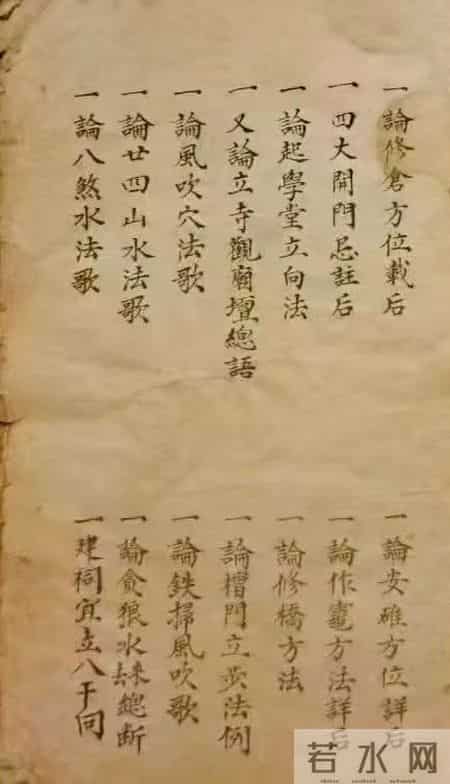 一論修倉方位載后
一論安碓方位詳后
一四大開門忌註后
一論作竈方法詳后
一論起學堂立向法
一論修橋方法
一又論立寺觀廟壇總語
一論槽門立步法例
一論風吹穴法歌
一論鉄掃風吹歌
一論廿四山水法歌
一論貪狼水来去總断
一論八煞水法歌
一建祠宜立八干向
若水网